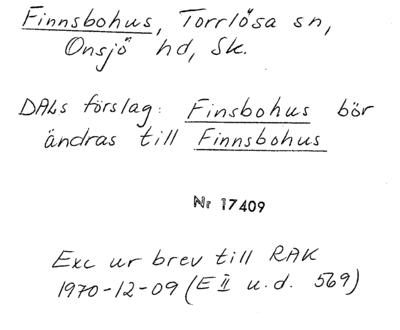 Finnsbohus, Torrlösa sn,
Onsjö hd, Sk.
DALs förslag: Finsbohus bör
ändras till Finnsbohus
Nr 17409
Exc ur brev till RAK
1970-12-09 (E II u.d. 569)